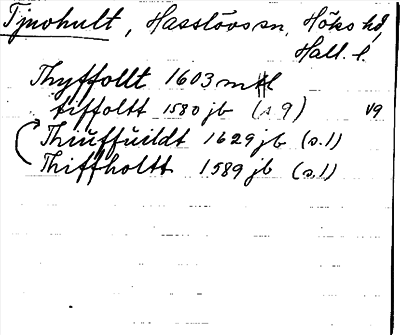 Tjuvhult, Hasslövs sn, Höks hd,
Hall. l.
Thyffollt 1603 mtl
tiffoltt 1580 jb (s. 9) v9
Thiuffuildt 1629 jb (s. 1)
Thiffholtt 1589 jb (s. 1)